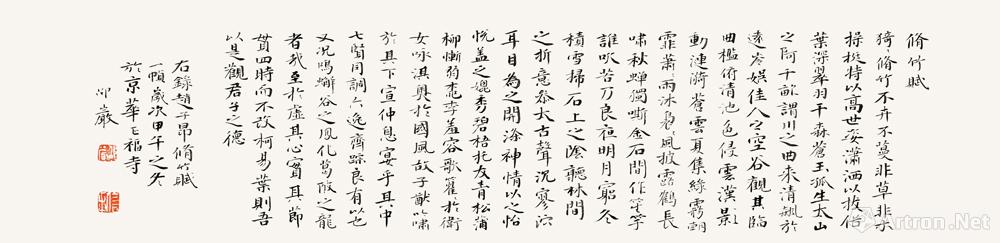 脩竹賦
猗猗脩竹不卉不蔓非草非木
操挺特以高世姿瀟洒以拔俗
葉深翠羽千森蒼玉孤生太山
之阿千畝渭川之曲來清飇於
遠岑娱佳人之空谷觀其臨
曲檻俯清池色侵雲漢影
動漣漪蒼雲夏集綠霧朝
霏蕭蕭雨沐裊裊風披露鶴長
嘯秋蟬獨嘶金石間作笙竽
誰吹若乃良夜明月窮冬
積雪掃石上之陰聽林間
之折意參太古聲沉寥泬
耳目為之開滌神情以之怡
悦蓋之媲秀碧梧托友青松蒲
柳慚弱桃李羞容歌籊籊於衛
女咏淇奥於國風故子猷吟嘯
於其下宣仲息宴乎其中
七賢同調六逸齊踪良有以也
又况鳴蜩谷之風化葛陂之龍
者哉至於虚其心實其節
貫四時而不改柯易葉則吾
以是觀君子之德
右錄趙子昂脩竹賦
一幀歲次甲午之冬
於京華正福寺
Artron.Net